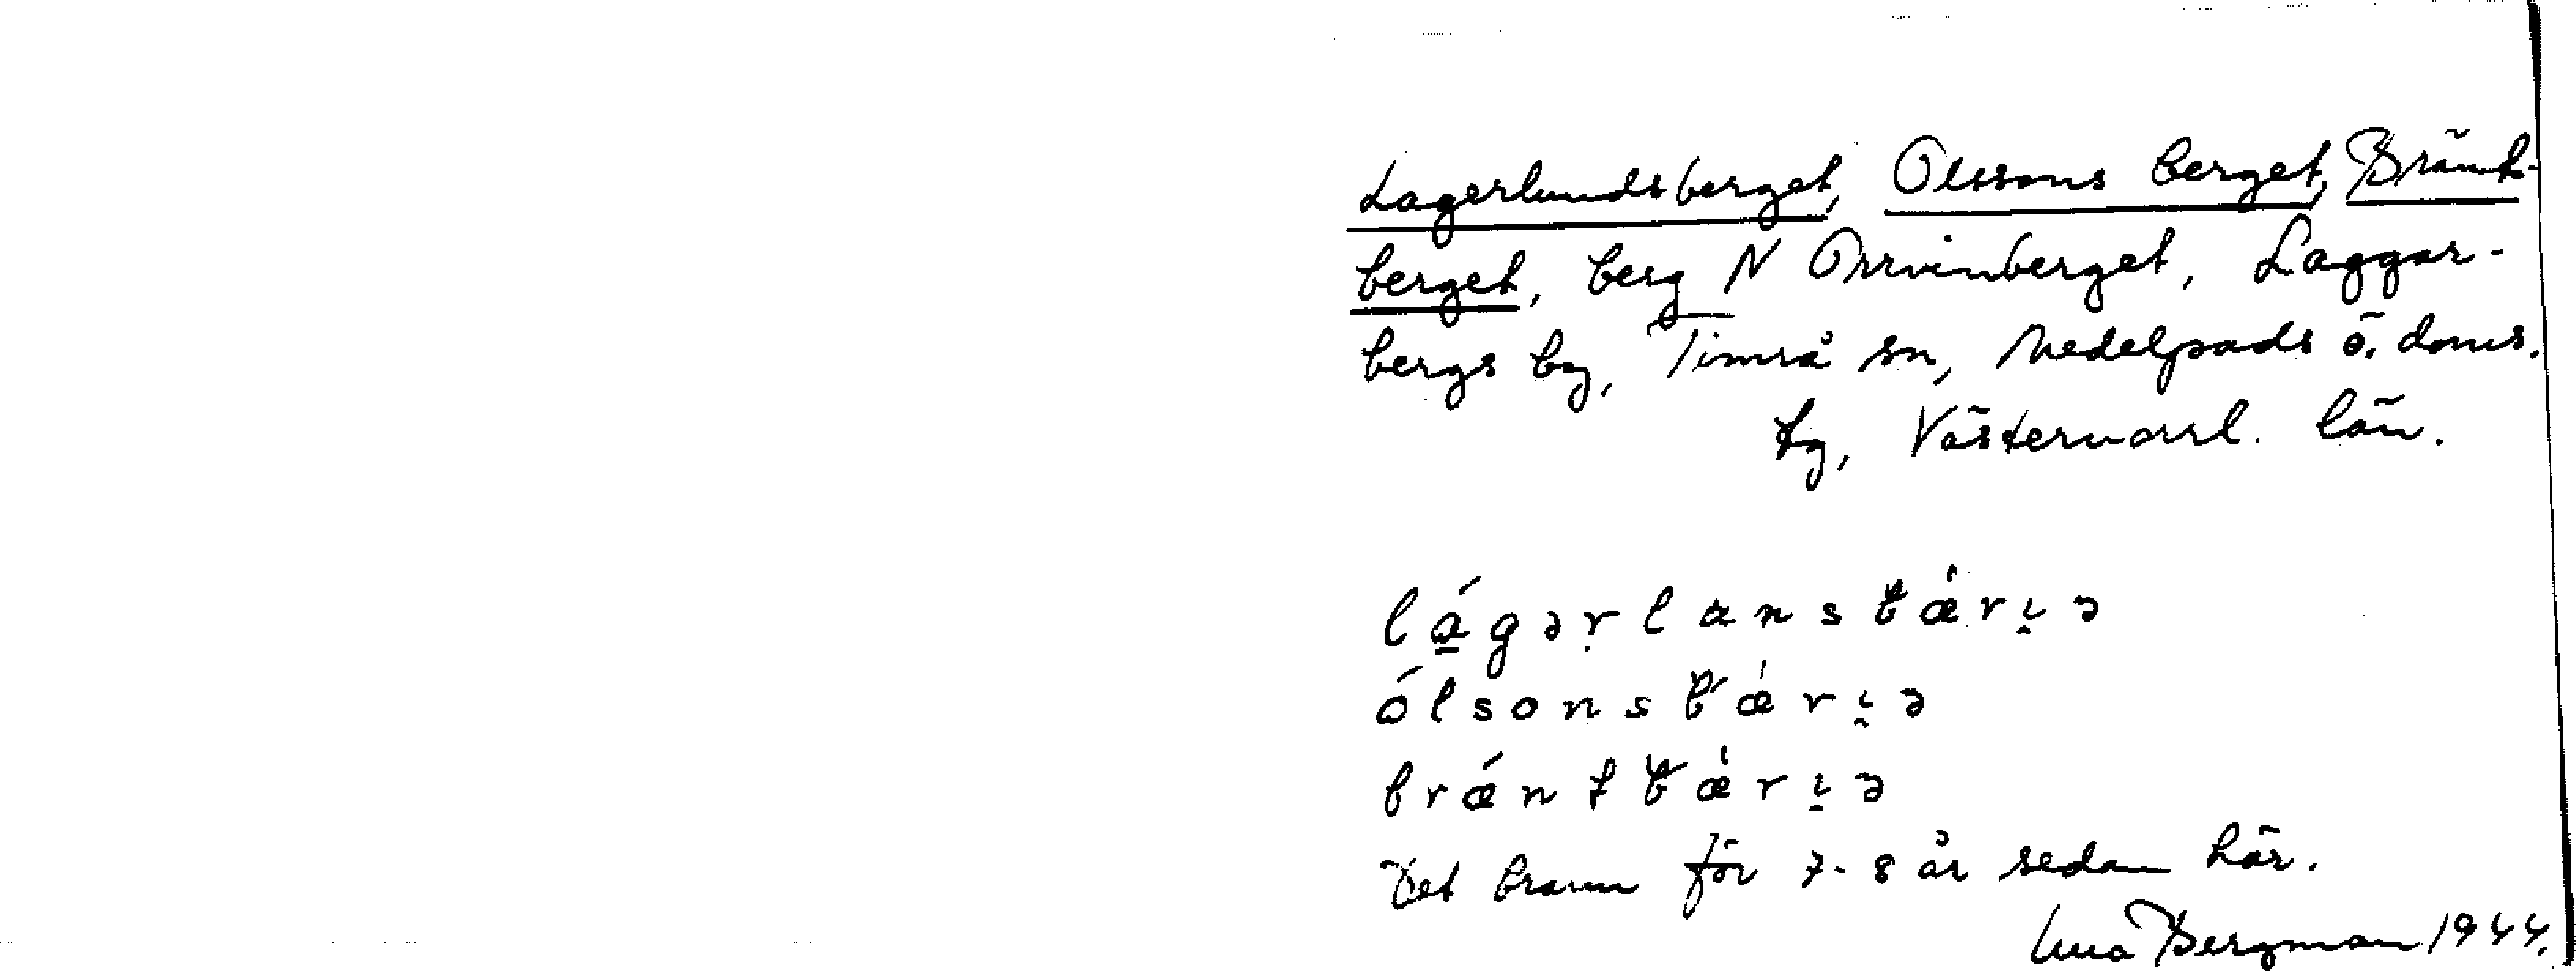 Lagerlundsberget, Olssons berget, Bränt-
berget, berg N Orrvinberget, Laggar-
bergs by, Timrå sn, Medelpads ö. doms.
tg, Västernorrl. län.
lágərlansbǽrı̯ə
ólsonsbǽrı̯ə
brǽntbǽrı̯ə
Det brann för 7-8 år sedan här.
Bergman 1944.